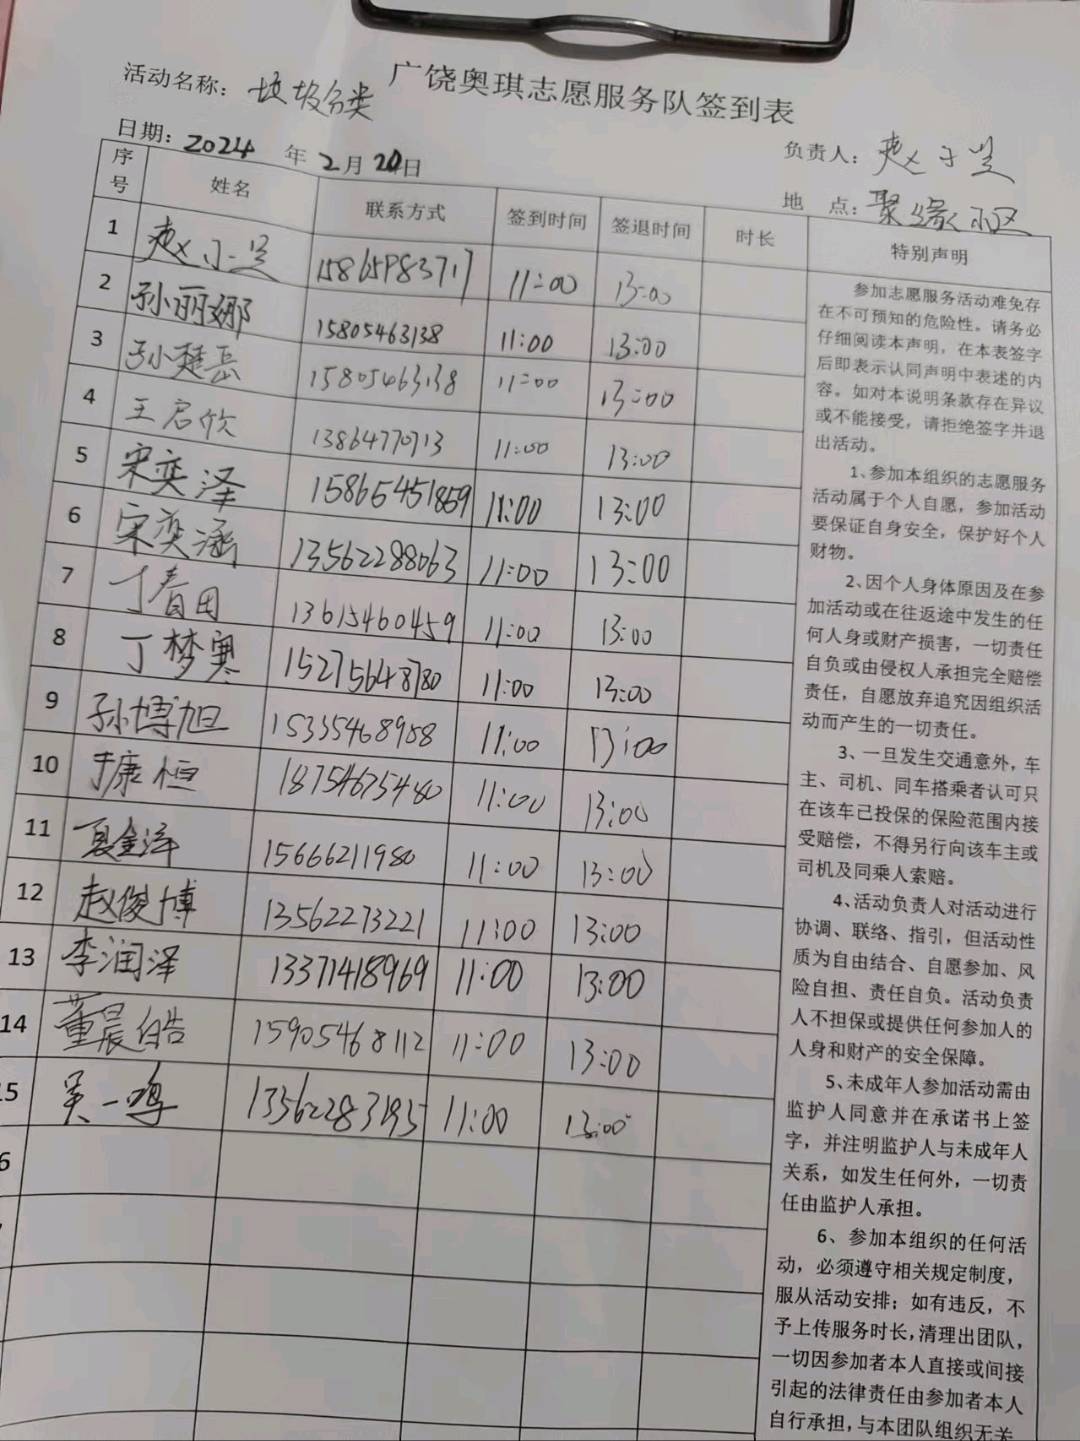 广饶奥琪志愿服务队签到表
活动名称：垃圾分类
负责人：赵小兰
日期：2024年2月20日
地 点：聚缘小区
序号 姓名 联系方式 签到时间 签退时间 时长 特别声明
1 赵小兰 15865983717 11:00 13:00
2 孙丽娜 15805463138 11:00 13:00
3 孙楚岳 15805463138 11:00 13:00
4 王启欣 13864770713 11:00 13:00
5 宋奕泽 15865451859 11:00 13:00
6 宋奕涵 13562288063 11:00 13:00
7 丁春田 13615460459 11:00 13:00
8 丁梦寒 15275648780 11:00 13:00
9 孙博旭 15335468958 11:00 13:00
10 于康恒 18754675480 11:00 13:00
11 夏金泽 15666211980 11:00 13:00
12 赵俊博 13562273221 11:00 13:00
13 李润泽 13371418969 11:00 13:00
14 董晨皓 15905468112 11:00 13:00
15 吴一鸣 13562283195 11:00 13:00
6
参加志愿服务活动难免存
在不可预知的危险性。请务必
仔细阅读本声明，在本表签字
后即表示认同声明中表述的内
容。如对本说明条款存在异议
或不能接受，请拒绝签字并退
出活动。
1、参加本组织的志愿服务
活动属于个人自愿，参加活动
要保证自身安全，保护好个人
财物。
2、因个人身体原因及在参
加活动或在往返途中发生的任
何人身或财产损害，一切责任
自负或由侵权人承担完全赔偿
责任，自愿放弃追究因组织活
动而产生的一切责任。
3、一旦发生交通意外，车
主、司机、同车搭乘者认可只
在该车已投保的保险范围内接
受赔偿，不得另行向该车主或
司机及同乘人索赔。
4、活动负责人对活动进行
协调、联络、指引，但活动性
质为自由结合、自愿参加、风
险自担、责任自负。活动负责
人不担保或提供任何参加人的
人身和财产的安全保障。
5、未成年人参加活动需由
监护人同意并在承诺书上签
字，并注明监护人与未成年人
关系，如发生任何外，一切责
任由监护人承担。
6、参加本组织的任何活
动，必须遵守相关规定制度，
服从活动安排；如有违反，不
予上传服务时长，清理出团队，
一切因参加者本人直接或间接
引起的法律责任由参加者本人
自行承担，与本团队组织无关